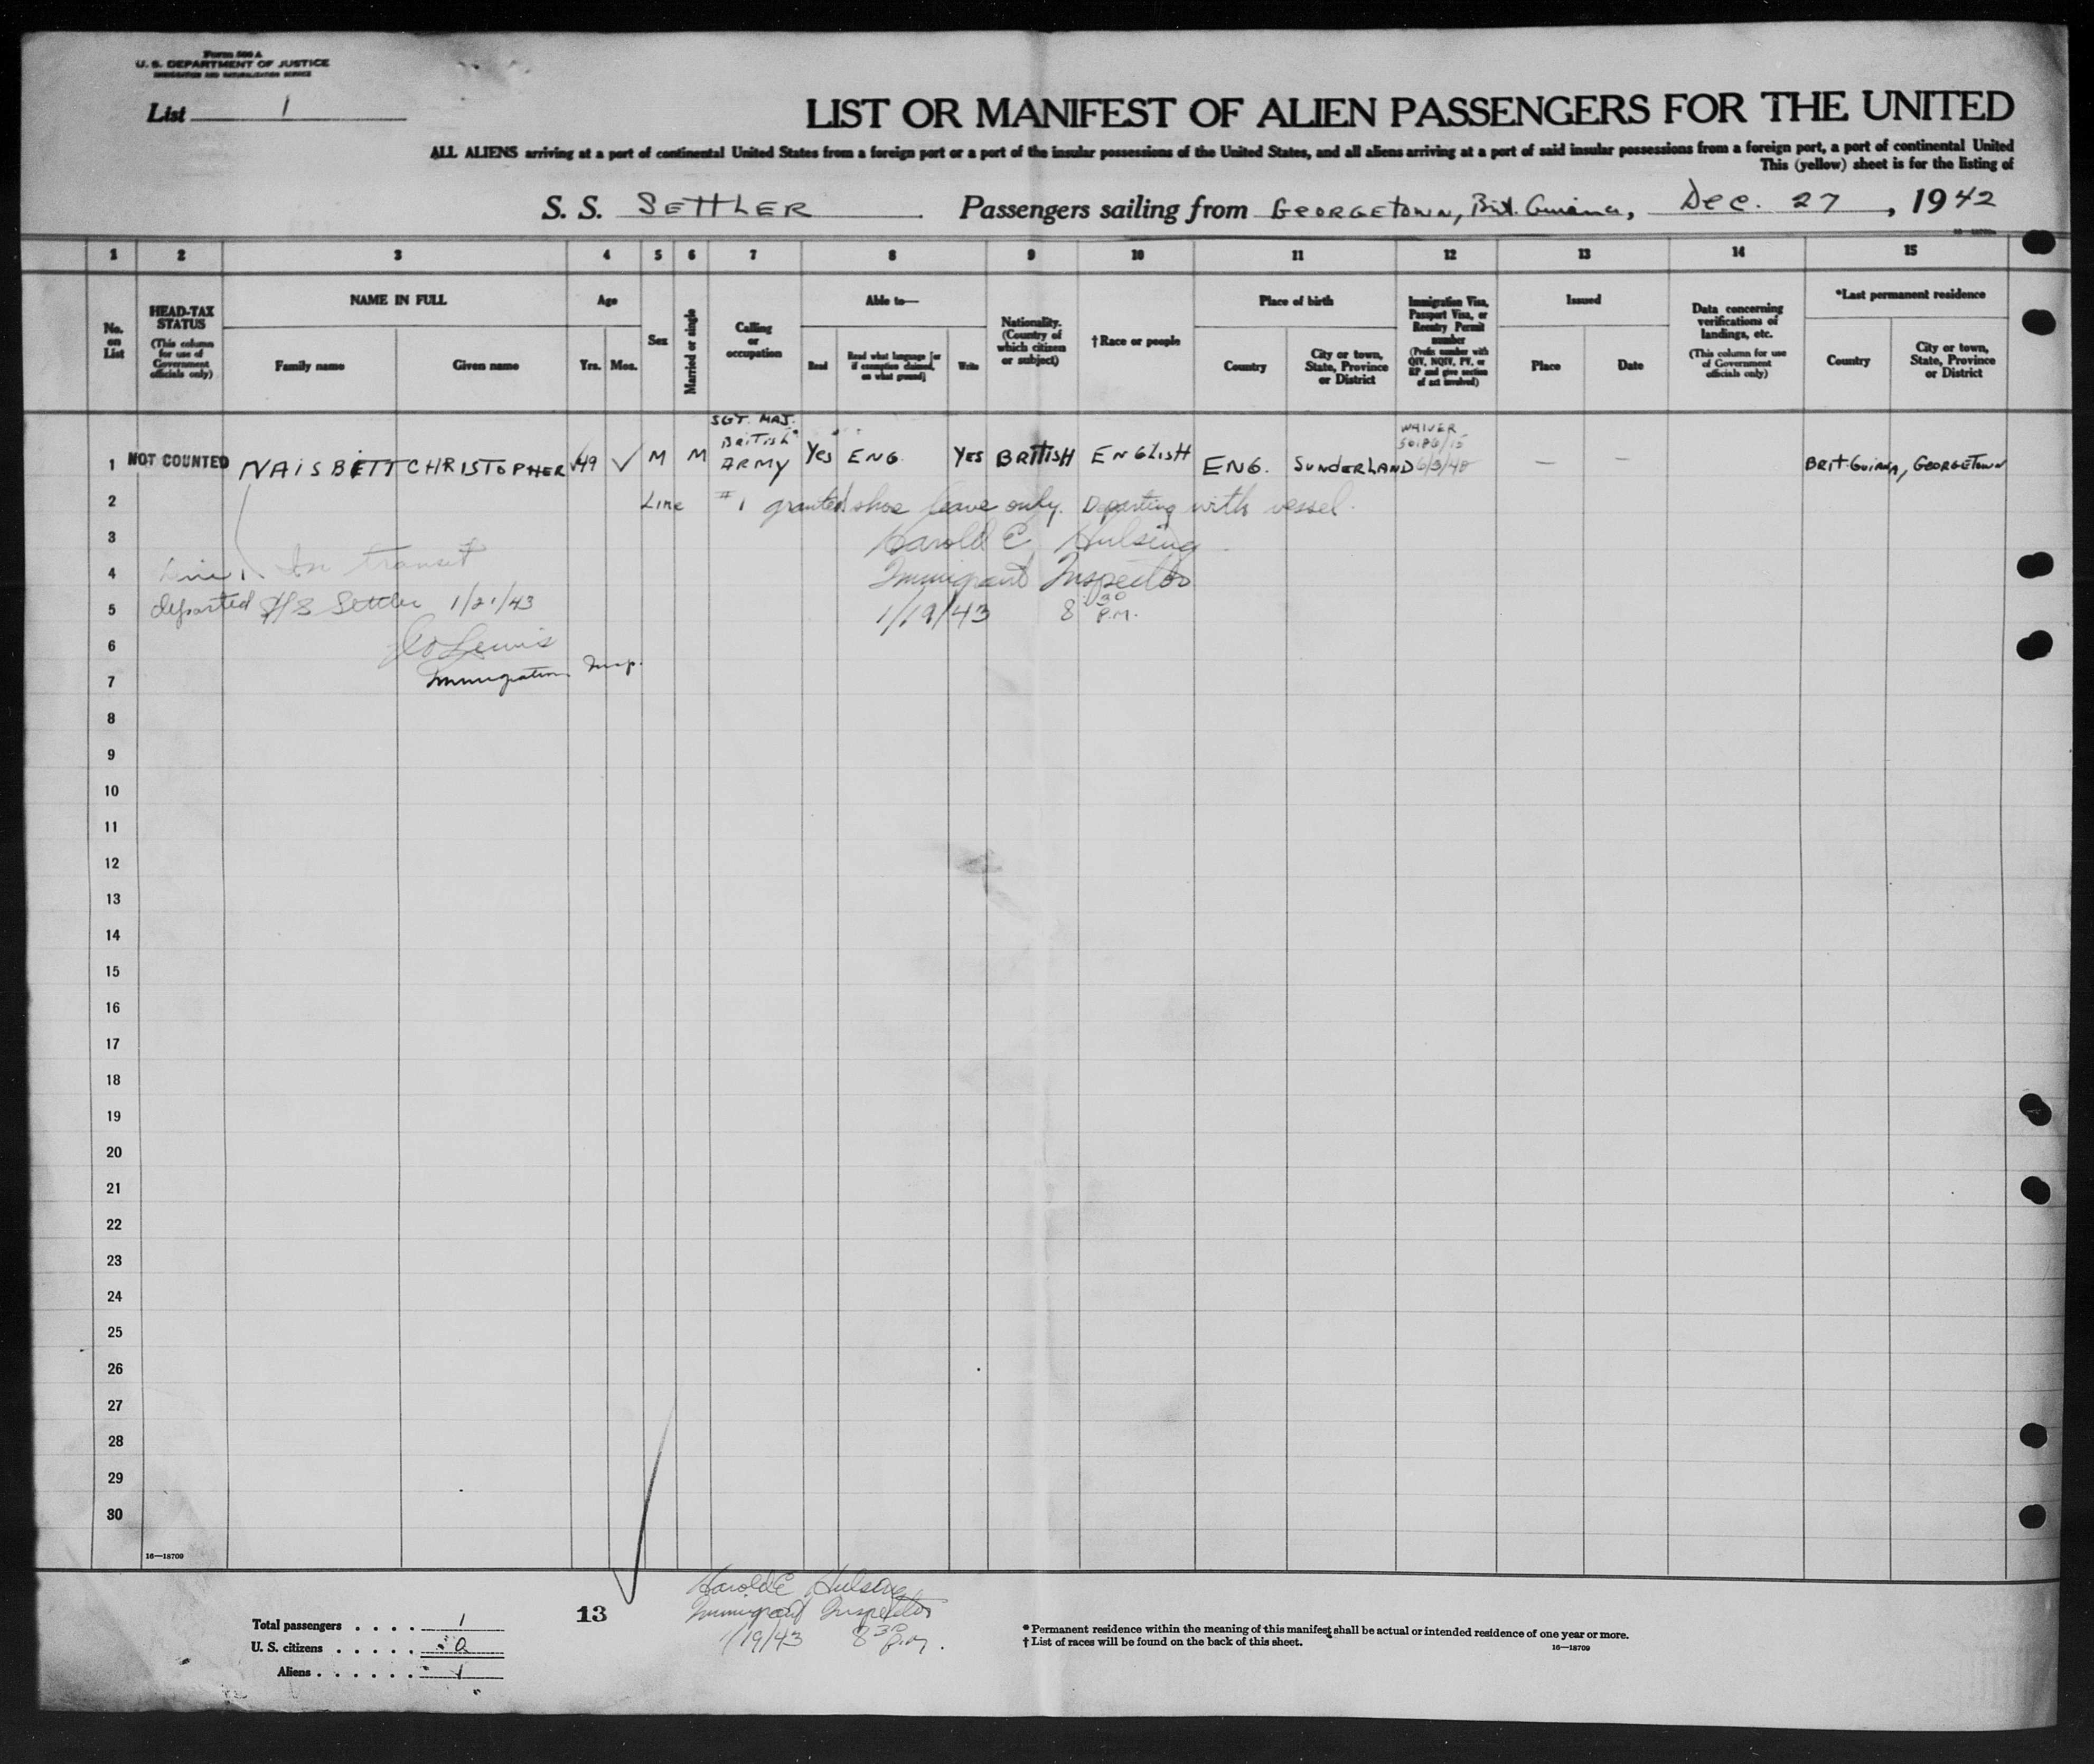 Form 500 A
U. S. DEPARTMENT OF JUSTICE
IMMIGRATION AND NATURALIZATION SERVICE
List 1
LIST OR MANIFEST OF ALIEN PASSENGERS FOR THE UNITED
ALL ALIENS arriving at a port of continental United States from a foreign port or a port of the insular possessions of the United States, and all aliens arriving at a port of said insular possessions from a foreign port, a port of continental United
This (yellow) sheet is for the listing of
S. S. SETTLER Passengers sailing from GEORGETOWN, Brit. Guiana, Dec. 27, 1942
1 2 3 4 5 6 7 8 9 10 11 12 13 14 15
No. on List
HEAD-TAX STATUS
(This column for use of Government officials only)
NAME IN FULL
Family name
Given name
Age
Yrs.
Mos.
Sex
Married or single
Calling or occupation
Able to—
Read
Read what language [or if exemption claimed, on what ground]
Write
Nationality. (Country of which citizen or subject)
† Race or people
Place of birth
Country
City or town, State, Province or District
Immigration Visa, Passport Visa, or Reentry Permit number
(Prefix number with QIV, NQIV, PV, or RP and give section of act involved)
Issued
Place
Date
Data concerning verifications of landings, etc.
(This column for use of Government officials only)
*Last permanent residence
Country
City or town, State, Province or District
1 NOT COUNTED NAISBETT CHRISTOPHER √49 √ M M SGT. MAJ. BRITISH ARMY Yes ENG. Yes BRITISH ENGLISH ENG. SUNDERLAND WAIVER — — BRIT. GUIANA, GEORGETOWN
2 Line #1 granted shore leave only. Departing with vessel.
3 Harold E. Hulsing
4 Line 1 In transit Immigrant Inspector
5 departed S/S Settler 1/21/43 1/19/43 8 30 P.M.
6 Lewis
7 Immigration Insp.
8
9
10
11
12
13
14
15
16
17
18
19
20
21
22
23
24
25
26
27
28
29
30
16—18709
Total passengers . . . . 1
U. S. citizens . . . . . 0
Aliens . . . . . . 1
13
Harold E. Hulsing
Immigrant Inspector
1/19/43 8 30 P.M.
* Permanent residence within the meaning of this manifest shall be actual or intended residence of one year or more.
† List of races will be found on the back of this sheet.
16—18709